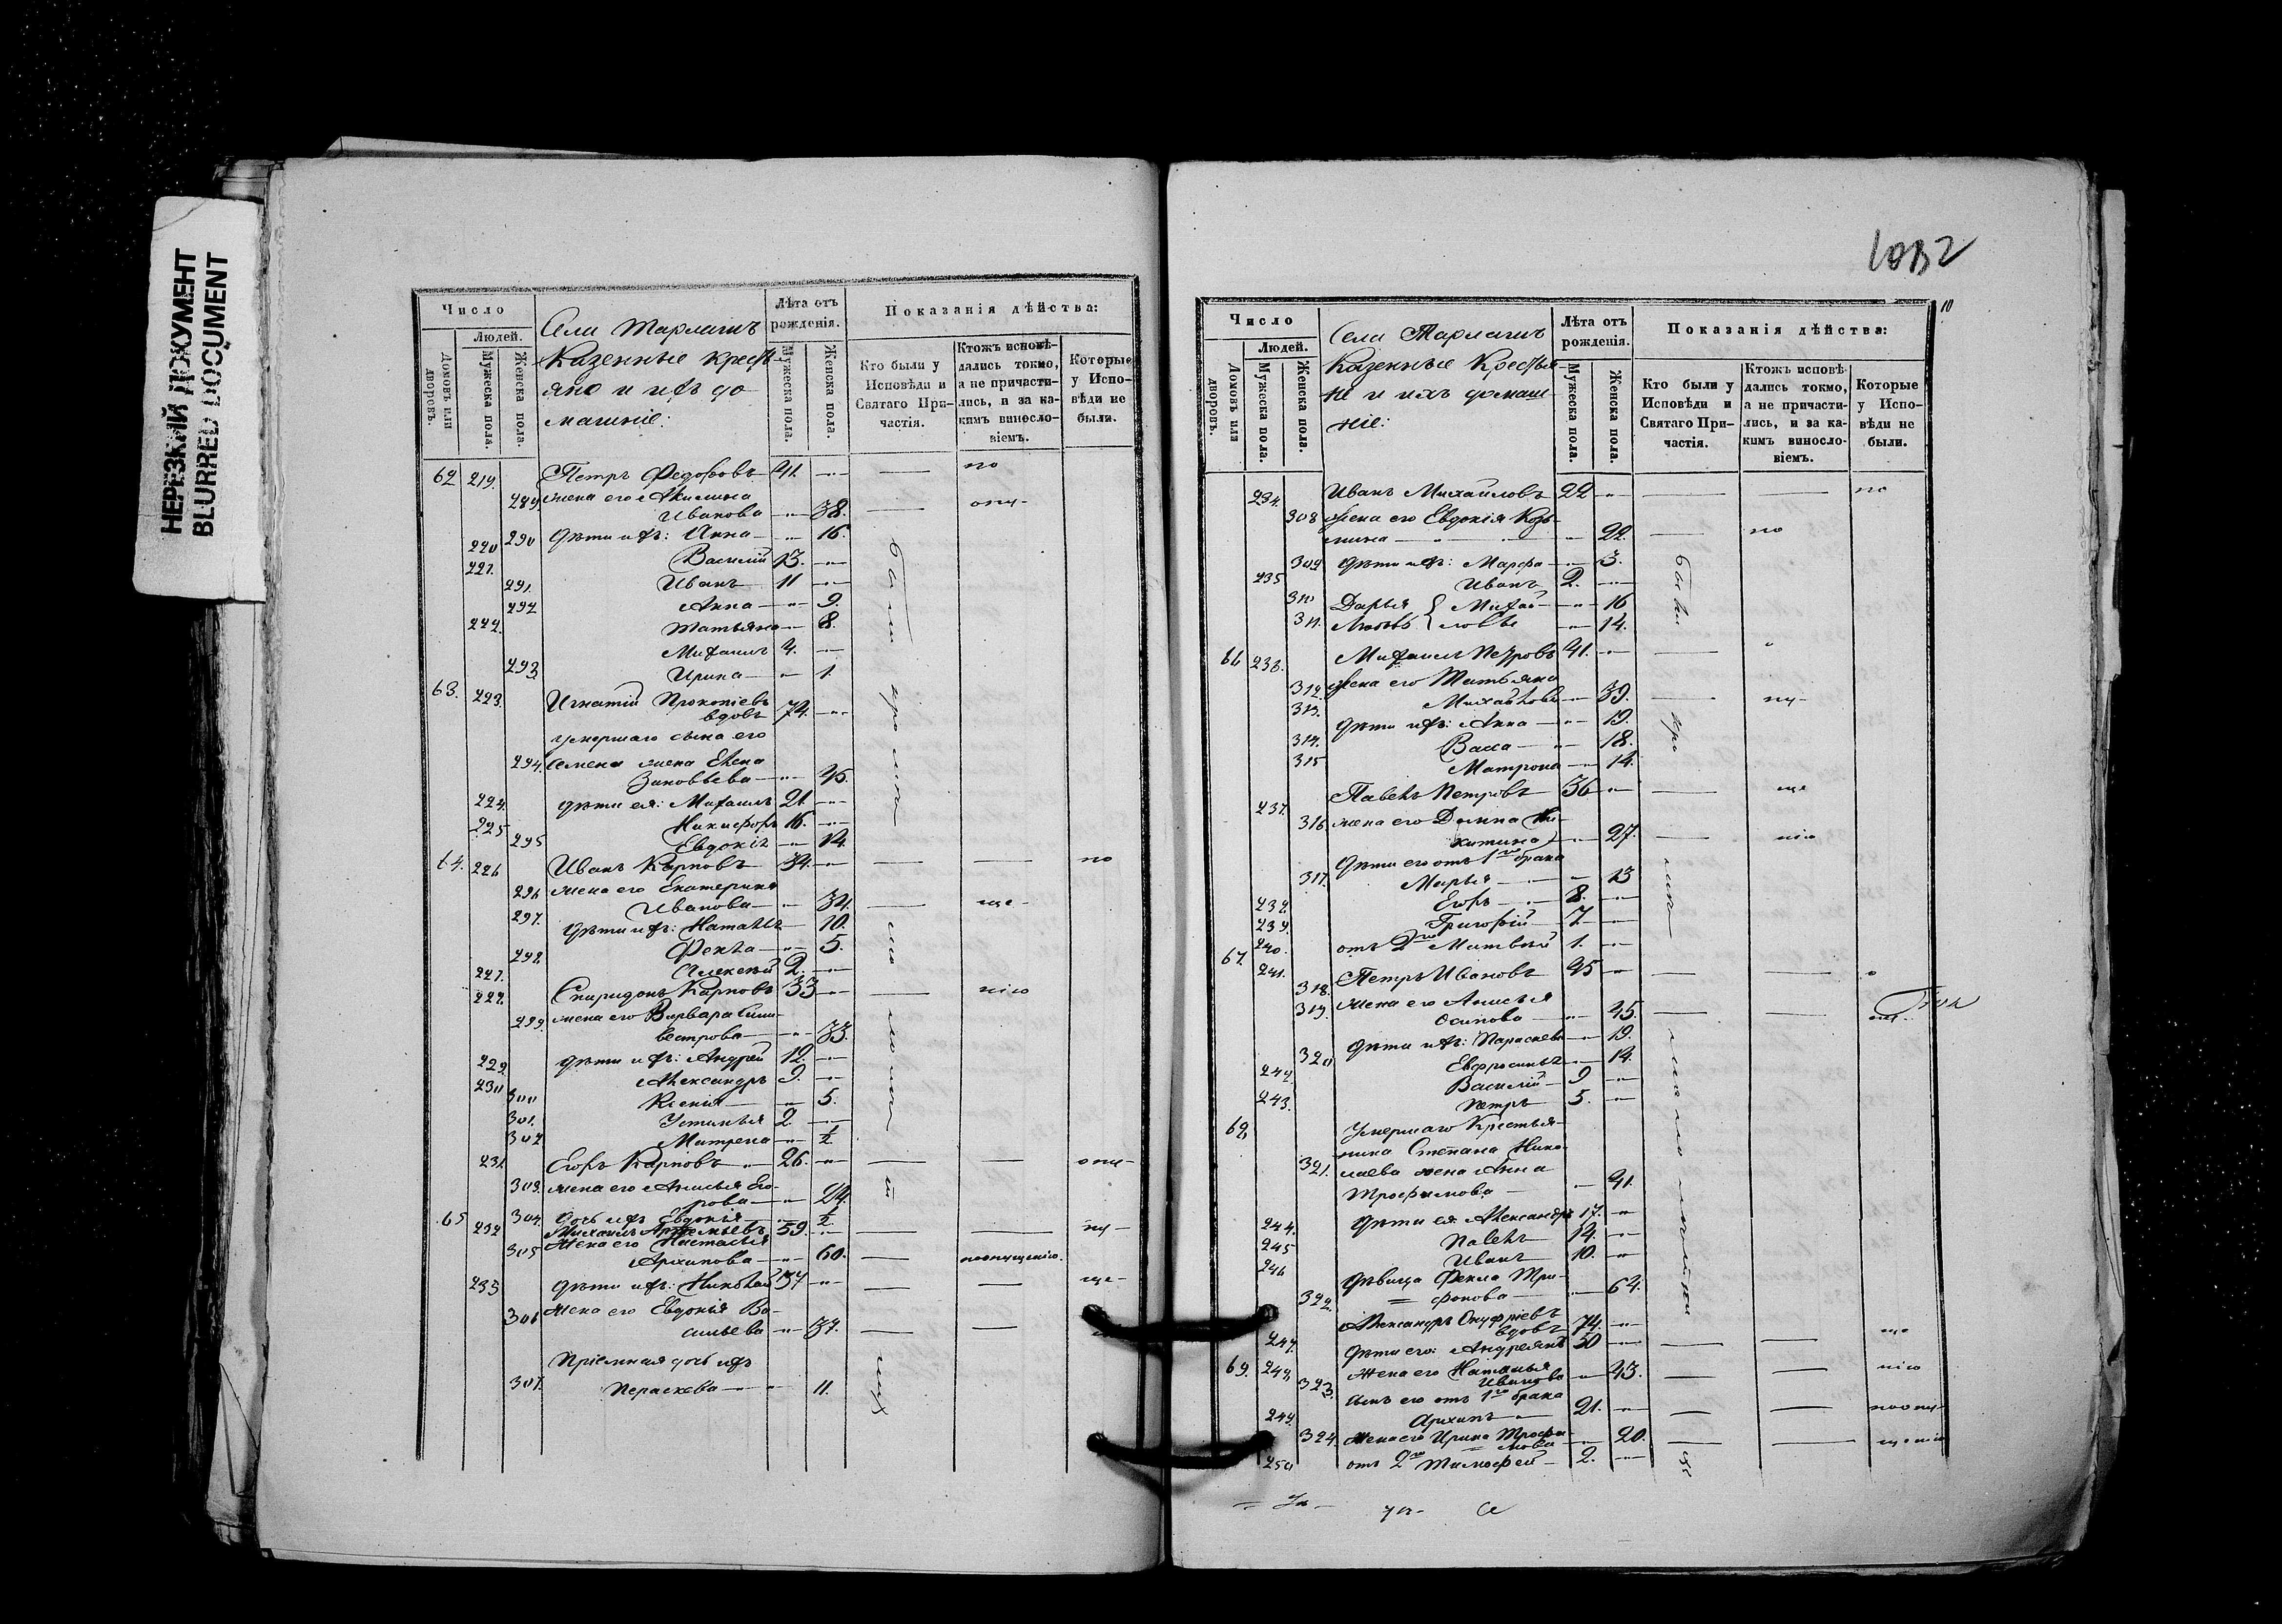 НЕРЕЗКИЙ ДОКУМЕНТ
BLURRED DOCUMENT
Число
Людей.
Домовъ или дворовъ.
Мужеска пола.
Женска пола.
Казенные кресть
яне и ихъ до
машніе:
Лѣта отъ рожденія.
Мужеска пола.
Женска пола.
Показанія дѣйства:
Кто были у Исповѣди и Святаго Причастія.
Ктожъ исповѣдались токмо, а не причастились, и за какимъ винословіемъ.
Которые у Исповѣди не были.
62 219. Петръ Федоровъ 41. по
289 жена его Акилина
Иванова 38. опу-
290 дѣти ихъ: Анна 16.
220 Василій 13.
221. Иванъ 11
291. Анна 9.
292 Татьяна 8.
222. Михаилъ 4.
293. Ирина 1.
63. 223. Игнатій Прокопіевъ
вдовъ 74.
умершаго сына его
294. Семена жена Елена
Зиновьева 45.
224. дѣти ея: Михаилъ 21.
225 Никифоръ 16.
295 Евдокія 14.
64. 226 Иванъ Карповъ 34. по
296 жена его Екатерина
Иванова 34. ще-
297. дѣти ихъ: Наталья 10.
298. Фекла 5.
227. Алексѣй 2.
228. Спиридонъ Карповъ 33 нію
299. жена его Варвара Сили-
вестрова 33.
229. дѣти ихъ: Андрей 12.
230 Александръ 9.
300 Ксенія 5.
301. Устинья 2
302 Матрена ½
231. Егоръ Карповъ 26. опу-
303. жена его Анисья Его-
рова 24.
304. дочь ихъ Евдокія ½
65 232 Михаилъ Артемьевъ 59. пу-
305 Жена его Настасья
Архипова 60. поопущенію.
233 дѣти ихъ: Николай 37 ще-
306 жена его Евдокія Ва-
сильева 37.
Пріемная дочь ихъ
307. Пераскева 11.
1032
10
Число
Людей.
Домовъ или дворовъ.
Мужеска пола.
Женска пола.
Казенные Крестья-
не и ихъ домаш-
ніе:
Лѣта отъ рожденія.
Мужеска пола.
Женска пола.
Показанія дѣйства:
Кто были у Исповѣди и Святаго Причастія.
Ктожъ исповѣдались токмо, а не причастились, и за какимъ винословіемъ.
Которые у Исповѣди не были.
234. Иванъ Михайловъ 22 по
308 жена его Евдокія Козь-
мина 22. по
309. дѣти ихъ: Марфа 3.
235 Иванъ 2.
310 Дарья { Михай- 16
311. Любовь { ловы 14.
66 236. Михаилъ Петровъ 41.
312. жена его Татьяна
Михайлова 39. пу-
313. дѣти ихъ: Анна 19.
314. Васса 18.
315 Матрона 14.
237. Павелъ Петровъ 36 ще
316. жена его Домна Ни-
китина 27. нію
дѣти его отъ 1го брака
317. Марья 13
238. Егоръ 8.
239. Григорій 7
240. отъ 2го Матвѣй 1.
67. 241. Петръ Ивановъ 45
318. жена его Анисья
Осипова 45.
319. дѣти ихъ: Параскева 19.
320 Евфросинья 14.
242. Василій 9
243. Петръ 5.
68. Умершаго Крестья-
нина Степана Нико-
321. лаева жена Анна
Трофимова 41.
244. дѣти ея: Александръ 17.
245 Павелъ 14.
246 Иванъ 10.
322. дѣвица Фекла Три-
фонова 64.
247. Александръ Онуфріевъ
вдовъ 74.
69. 248. дѣти его: Андреянъ 50 ще
323. жена его Наталья
Иванова 43. нію
сынъ его отъ 1го брака
249. Архипъ 21. поопу-
324. жена его Ирина Трофи-
мова 20. щенію
250 отъ 2го Тимофей 2.